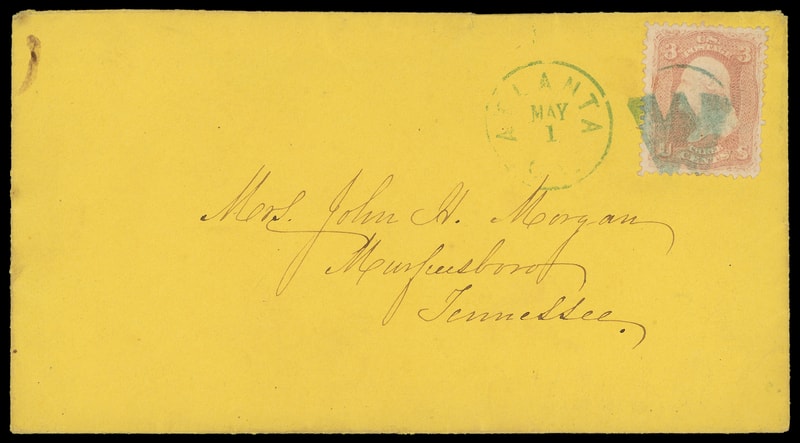 3 U.S. 3
POSTAGE
ATLANTA
MAY
1
U S
CENTS
Mrs. John H. Morgan
Murfreesboro
Tennessee.